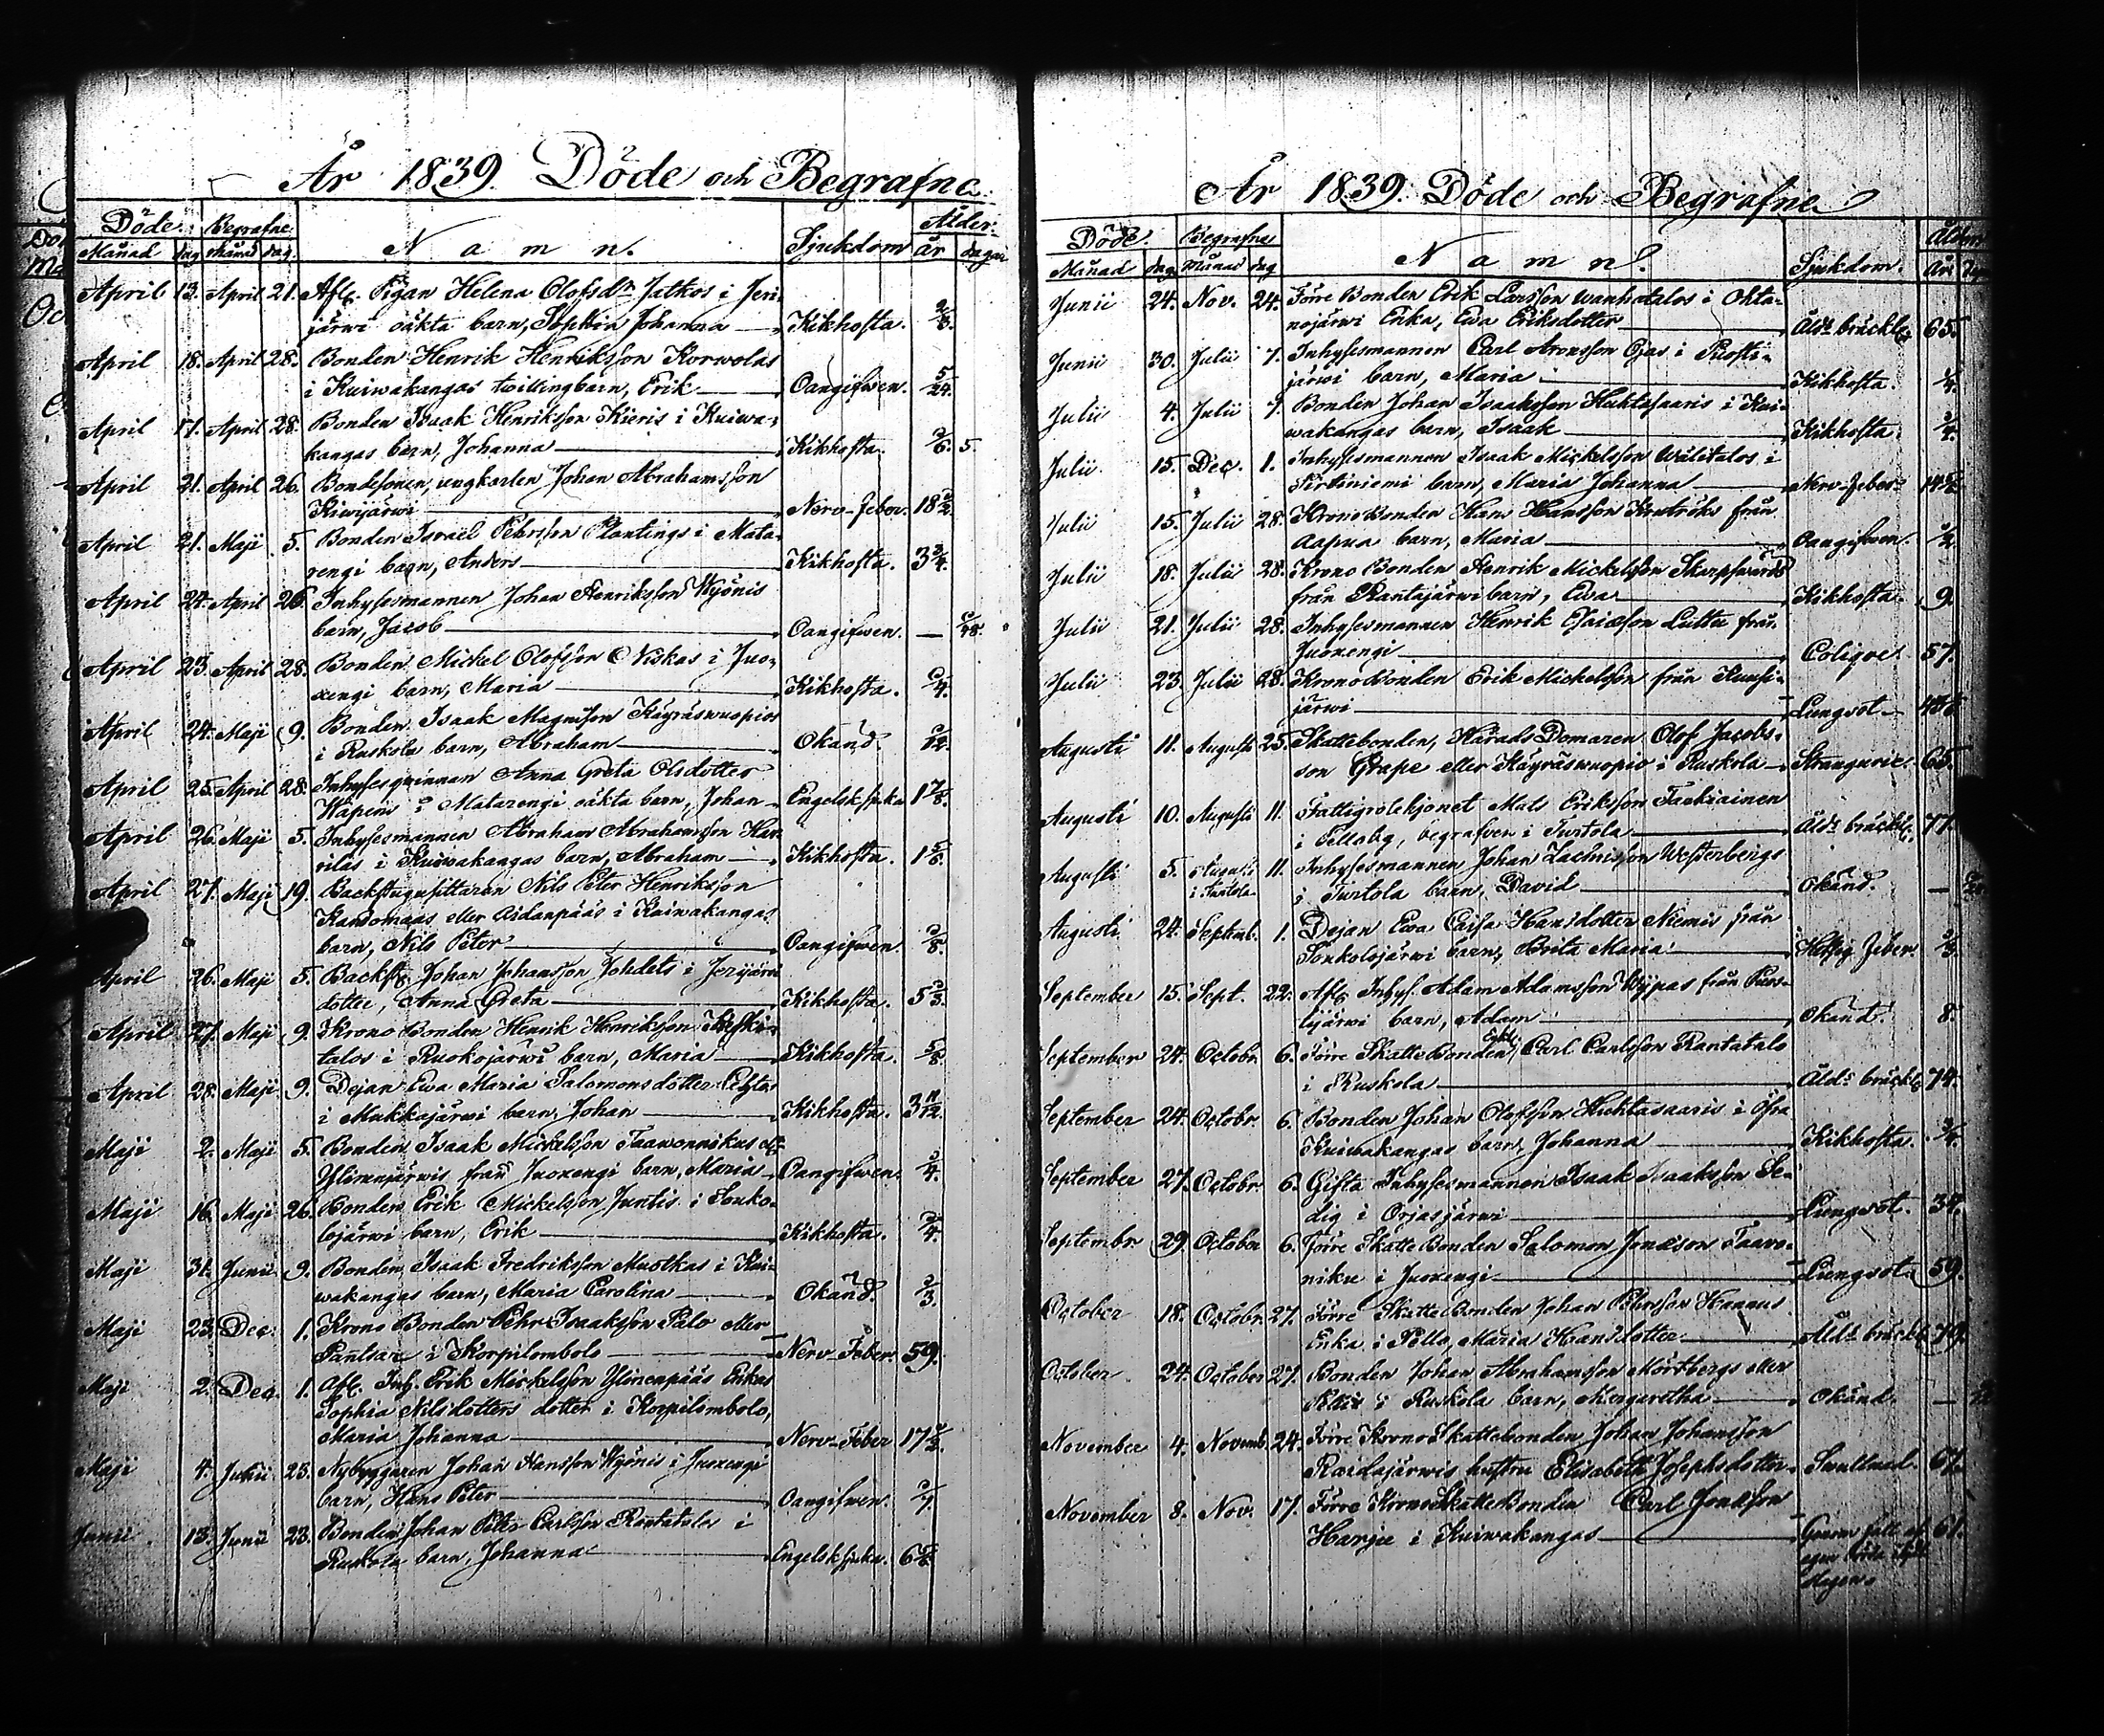 År 1839. Döde och Begrafne.
Döde. Begrafne. Namn. Sjukdom Ålder.
Månad dag Månad dag. år dagar
April 13. April 21. Afl. Pigan Helena Olofsdr Jatkos i Jeri-
järwi oäkta barn, Sophia Johanna Kikhosta. 2/3.
April 18. April 28. Bonden Henrik Henriksson Korwolas
i Kuiwakangas twillingbarn, Erik Oangifwen. 5/24.
April 17. April 28. Bonden Isaak Henriksson Kieris i Kuiwa-
kangas barn, Johanna Kikhosta. 5.
April 21. April 26. Bondesonen, ungkarlen Johan Abrahamsson
Kiwijärwi Nerv-Feber. 18
April 21. Maji 5. Bonden Israël Pehrsson Plantings i Mata-
rengi barn, Anders Kikhosta. 3
April 24. April 26. Inhysesmannen Johan Henriksson Wyönis
barn, Jacob Oangifwen. —
April 23. April 28. Bonden Mickel Olofsson Niskas i Juo-
xengi barn, Maria Kikhosta.
April 24. Maji 9. Bonden Isaak Magnusson Käyräswuopios
i Ruskola barn, Abraham Okänd.
April 25. April 28. Inhysesqwinnan Anna Greta Olsdotter
i Matarengi oäkta barn, Johan Engelsk sjuka 1 7/8.
April 26. Maji 5. Inhysesmannen Abraham Abrahamsson
i Kuiwakangas barn, Abraham Kikhosta. 1
April 27. Maji 19. Backstugusittaren Nils Peter Henriksson
eller Aidanpääs i Kuiwakangas
barn, Nils Peter Oangifwen.
April 26. Maji 5. Backst. Johan Johansson i Jerijärwi
dotter, Anna Greta Kikhosta. 5
April 27. Maji 9. Krono Bonden Henrik Henriksson
talos i Ruokojärwi barn, Maria Kikhosta. 5/8.
April 28. Maji 9. Dejan Ewa Maria Salomonsdotter
i Mukkajärwi barn, Johan Kikhosta. 3 11/12.
Maji 2. Maji 5. Bonden Isaak Mickelsson Taawonnikus
från Juoxengi barn, Maria Oangifwen.
Maji 16. Maji 26. Bonden Erik Mickelsson Juntis i Sonko-
lojärwi barn, Erik Kikhosta.
Maji 31. Junii 9. Bonden Isaak Fredriksson Mustkas i Kui-
wakangas barn, Maria Carolina Okänd. 2/3.
Maji 23. Dec. 1. Krono Bonden Pehr Isaaksson Palo eller
Pantsar i Korpilombolo Nerv-Feber. 59.
Maji 2. Dec. 1. Afl. Inh. Erik Mickelsson Ylinenpääs Enkas
Sophia Nilsdotters dotter i Korpilombolo,
Maria Johanna Nerv-Feber 17
Maji 4. 23. Nybyggaren Johan Hansson Wyönis i Juoxengi
barn, Hans Peter Oangifwen.
Junii 13. Junii 23. Bonden Johan Peter Carlsson Rantatalos i
Ruskola barn, Johanna Engelsk sjuka. 6
År 1839. Döde och Begrafne
Döde. Begrafne Namn. Sjukdom.
Månad dag Månad dag År
Junii 24. Nov. 24. Förre Bonden Erik Larsson Wanhatalos i Ohta-
nojärwi Enka, Ewa Eriksdotter Ålds bräckl. 65.
Junii 30. Julii 7. Inhysesmannen Carl Aronsson Ojas i Puosti-
järwi barn, Maria Kikhosta.
Julii 4. Julii 7. Bonden Johan Isaaksson Huhtasaaris i Kui-
wakangas barn, Isaak Kikhosta.
Julii 15. Dec. 1. Inhysesmannen Isaak Mickelsson Wälitalos i
Pirtiniemi barn, Maria Johanna Nerv-feber. 14
Julii 15. Julii 28. Krono Bonden Hans Hansson från
Aapua barn, Maria Oangifwen.
Julii 18. Julii 28. Krono Bonden Henrik Mickelsson
från Rantajärwi barn, Ewa Kikhosta. 9.
Julii 21. Julii 28. Inhysesmannen Henrik från
Juoxengi Colique. 57.
Julii 23. Julii 28. Krono Bonden Erik Mickelsson från Kuusi-
järwi Lungsot.
Augusti 11. Augusti 25. Skattebonden, Härads Domaren Olof Jacobs-
son Grape eller Käyräswuopio i Ruskola Strangurie. 65.
Augusti 10. Augusti 11. Fattighjonet Mats Eriksson
i begrafwen i Turtola Ålds bräckl. 77.
Augusti 5. Augusti 11. Inhysesmannen Johan Westerbergs
i Turtola
i Turtola barn, David Okänd. —
Augusti 24. Septemb. 1. Dejan Ewa Caisa Hansdotter Niemis från
Sonkolojärwi barn, Brita Maria Feber.
September 15. Sept. 22. Afl. Inhys. Adam Adamsson från Puos-
tijärwi barn, Adam Okänd. 8.
September 24. Octobr 6. Förre Skatte Bonden, Carl Carlsson Rantatalo
i Ruskola Ålds bräckl. 74.
September 24. Octobr. 6. Bonden Johan Olofsson Huhtasaaris i öfra
Kuiwakangas barn, Johanna Kikhosta.
September 27. Octobr 6. Gifta Inhysesmannen Isaak Isaaksson Se-
dig i Orjasjärwi Lungsot. 34.
Septembr 29. October 6. Förre Skatte Bonden Salomon Jonasson Taawo-
niku i Juoxengi Lungsot. 59.
October 18. Octobr. 27. Förre Skatte Bonden Johan Pehrsson Hannus
Enka i Pello, Maria Hansdotter Ålds bräckl. 79.
October 24. October 27. Bonden Johan Abrahamsson Mörtbergs eller
i Ruskola barn, Margaretha Okänd. —
November 4. Novemb. 24. Förre Krono Skattebonden Johan Johansson
Raidajärwis hustru Elisabeth Josephsdotter Swullnad. 67.
November 8. Nov. 17. Förre Krono Skatte Bonden Carl Jonasson
Harju i Kuiwakangas Genom fall af 61.